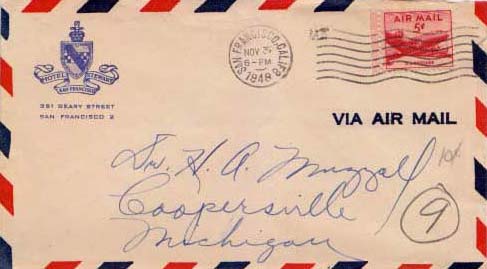 HOTEL STEWART
SAN FRANCISCO
351 GEARY STREET
SAN FRANCISCO 2
SAN FRANCISCO, CALIF.
NOV
6-PM
1948
AIR MAIL
5¢
VIA AIR MAIL
Dr. H. A. Muzzall
Coopersville
Michigan
9